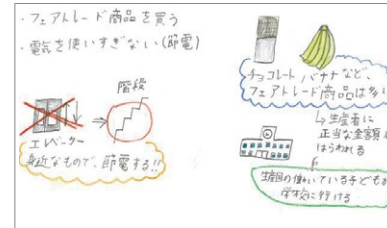 ・フェアトレード商品を買う
・電気を使いすぎない(節電)
階段
エレベーター
身近なもので、節電する!!
チョコレート バナナなど、
フェアトレード商品は多い
↳生産者に
正当な金額が
はらわれる
生産国の働いている子どもが
学校に行ける